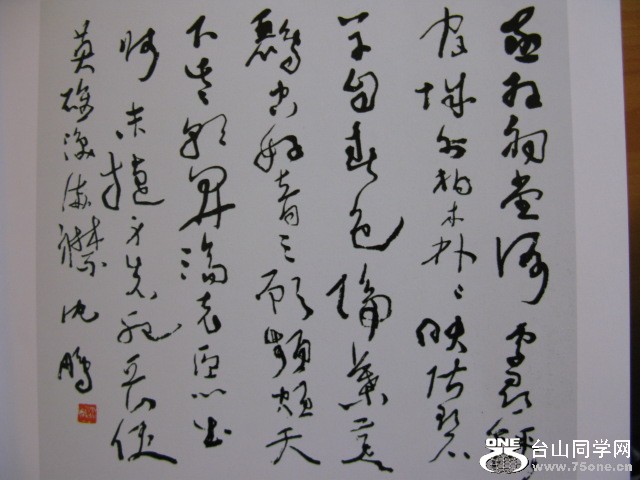 丞相祠堂何處尋錦
官城外柏森〻映階碧
草自春色隔葉黃
鸝空好音三顧頻煩天
下計兩朝開濟老臣心出
師未捷身先死長使
英雄淚滿襟 沈鵬
ONE
台山同学网
www.75one.cn